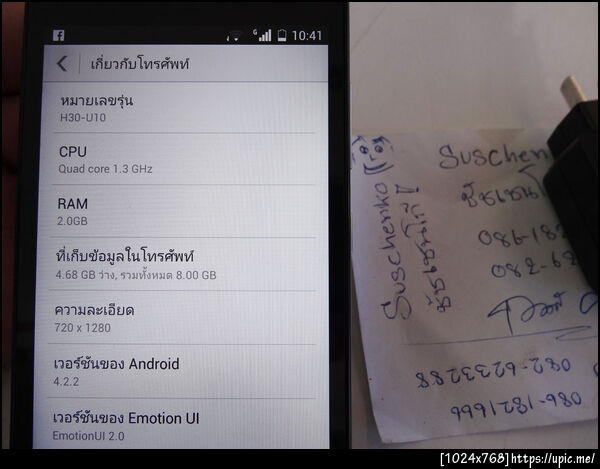 10:41
เกี่ยวกับโทรศัพท์
หมายเลขรุ่น
H30-U10
CPU
Quad core 1.3 GHz
RAM
2.0GB
ที่เก็บข้อมูลในโทรศัพท์
4.68 GB ว่าง, รวมทั้งหมด 8.00 GB
ความละเอียด
720 x 1280
เวอร์ชันของ Android
4.2.2
เวอร์ชันของ Emotion UI
EmotionUI 2.0
Suschen
086-182
082-62
Suschenko
082-6233288
086-1821666
[1024x768]https://upic.me/